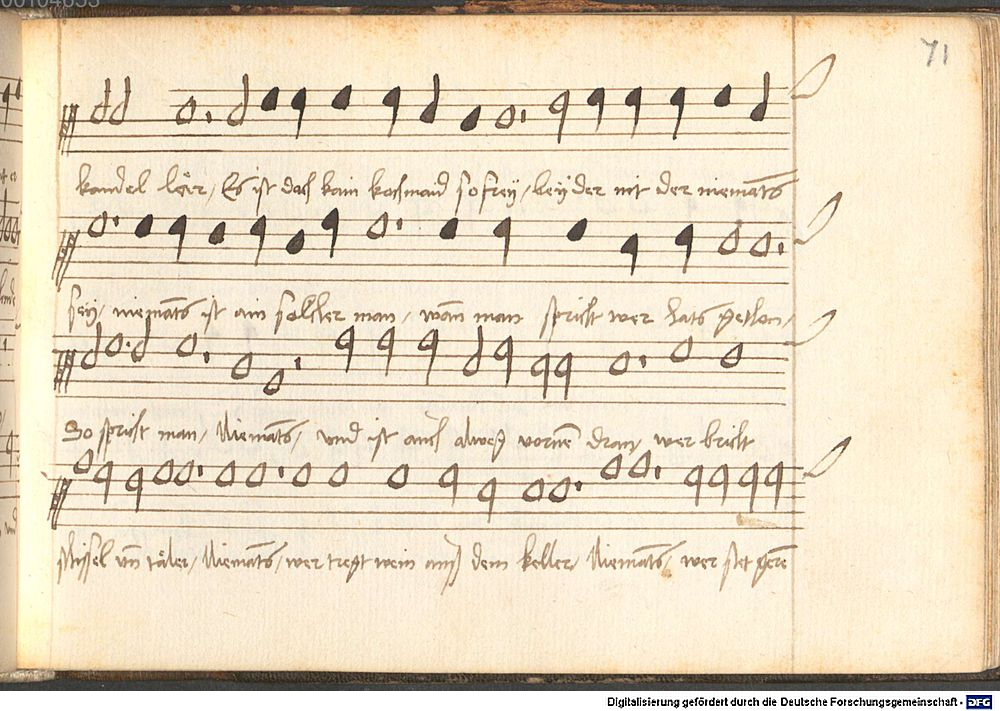 00104633
71
kandel lär / Es ist doch kain so frey / der mit der niemāts
sey / niemāts ist ain selzer man / wañ man spricht wer hats gethon /
So spricht man / Niemāts / und ist auch alweg vornē dran / wer bricht
schüsel uñ täler / Niemāts / wer tregt wein auß dem keller / Niemāts / wer stet gerē
Digitalisierung gefördert durch die Deutsche Forschungsgemeinschaft - DFG